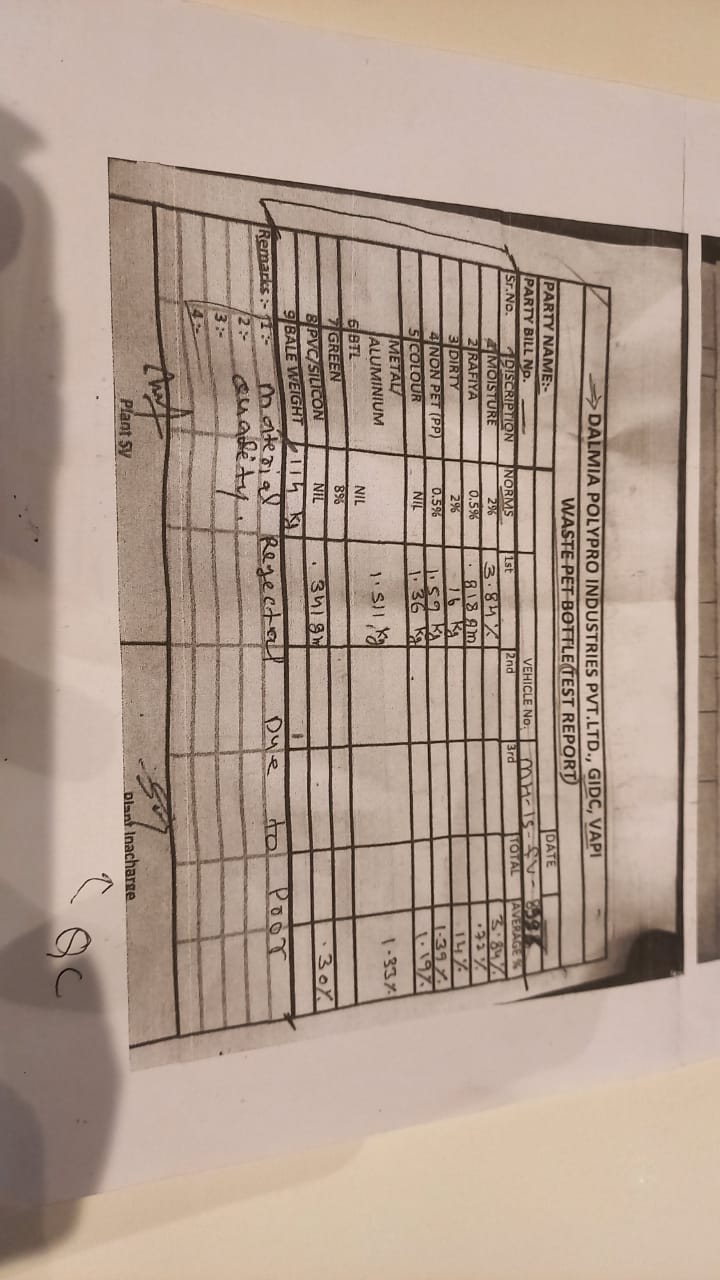 DALMIA POLYPRO INDUSTRIES PVT.LTD., GIDC, VAPI
WASTE PET BOTTLE TEST REPORT
PARTY NAME:- DATE
PARTY BILL No. VEHICLE No. MH-15-
Sr.No. DISCRIPTION NORMS 1st 2nd 3rd TOTAL AVERAGE %
1 MOISTURE 2% 3.84% 3.84%
2 RAFIYA 0.5% .818 gm .72%
3 DIRTY 2% 16 kg 14%
4 NON PET (PP) 0.5% 1.59 kg 1.39%
5 COLOUR NIL 1.36 kg 1.19%
METAL/
ALUMINIUM 1.511 kg 1.33%
6 BTL NIL
7 GREEN 8%
8 PVC/SILICON NIL .341 gm .30%
9 BALE WEIGHT 114 kg
Remarks :- 1:- material Rejected Due to Poor
2:- quality.
3:-
4:-
Plant SV Plant Inacharge
QC